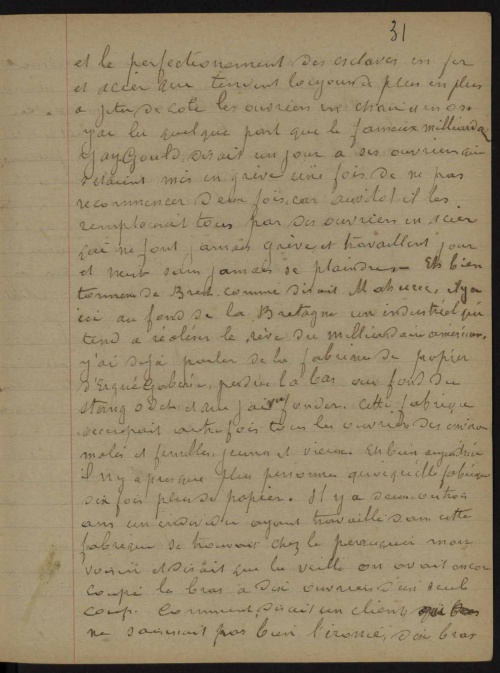 31
et le perfectionement des esclaves en fer
et acier qui tendent toujours de plus en plus
a jeter de coté les ouvriers en chair et en os.
j'ai lu quelque part que le fameux milliardaire
Jay Gould, disait un jour a ses ouvriers qui
s'etaient mis en grève une fois de ne pas
recommencer deux fois, car aussitot il les
remplacerait tous par des ouvriers en acier
qui ne font jamais grève et travaillent jour
et nuit sans jamais se plaindre. Eh bien
de Brest comme disait Mahurec, il y a
ici au fond de la Bretagne un industriel qui
tend a réaliser le rêve du milliardaire américain.
j'ai dejà parler de la fabrique de papier
d'Ergué-Gabéric, perdue la bas au fond du
stang odet et que j'ai vu fonder. Cette fabrique
occupait autrefois tous les ouvriers des environs
mâles et femelles, jeunes et vieux. Eh bien aujourd'hui
il n'y a presque plus personne quoiqu'elle fabrique
dix fois plus de papier. Il y a deux ou trois
ans un individu ayant travaillé dans cette
fabrique se trouvait chez le perruquier mon
voisin et disait que la veille on avait encore
coupé le bras a dix ouvriers d'un seul
coup. Comment, disait un client qui
ne saisissait pas bien l'ironie, dix bras